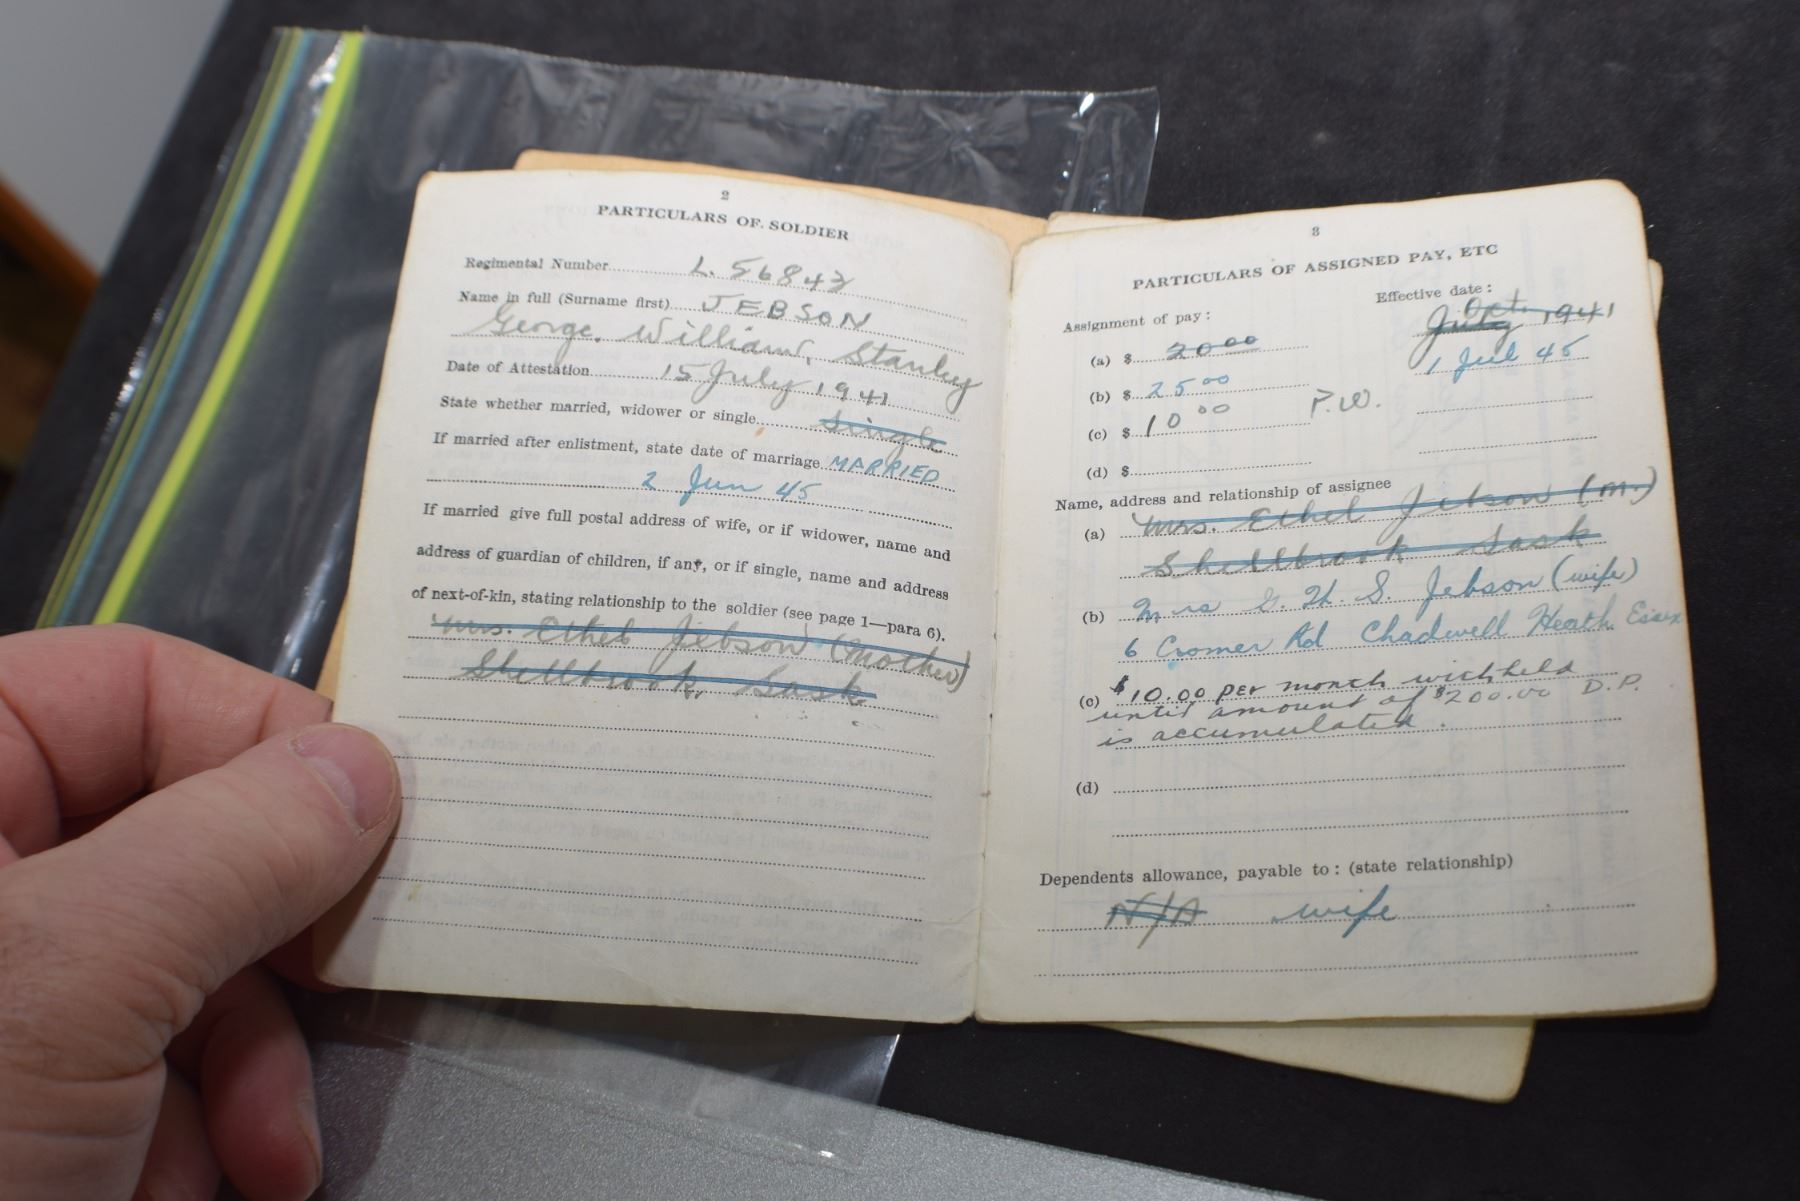 2
PARTICULARS OF SOLDIER
Regimental Number L. 56842
Name in full (Surname first) JEBSON
George, William, Stanley
Date of Attestation 15 July 1941
State whether married, widower or single Single
If married after enlistment, state date of marriage MARRIED
2 Jun 45
If married give full postal address of wife, or if widower, name and
address of guardian of children, if any, or if single, name and address
of next-of-kin, stating relationship to the soldier (see page 1—para 6).
Mrs. Ethel Jebson (Mother)
Shellbrook, Sask
3
PARTICULARS OF ASSIGNED PAY, ETC
Effective date:
Assignment of pay:
Oct.
(a) $ 20 00 July 1941
(b) $ 25 00 1 Jul 45
(c) $ 10 00 P.W.
(d) $
Name, address and relationship of assignee
(a) Mrs. Ethel Jebson (M.)
Shellbrook Sask
(b) Mrs G. W. S. Jebson (wife)
6 Cromer Rd Chadwell Heath Essex
(c) $10.00 per month withheld
until amount of $200.00 D.P.
is accumulated.
(d)
Dependents allowance, payable to: (state relationship)
N/A wife